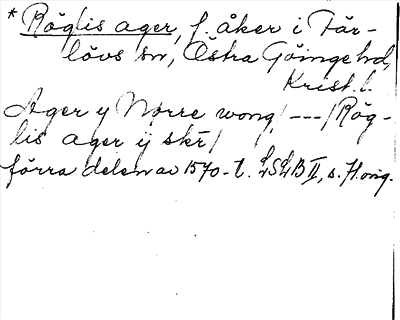 * Röglis ager, f. åker i Fär-
lövs sn, Östra Göinge hd,
Krist. l.
Ager y Nørre wong / --- / Røg-
lis ager ij skr /
förra delen av 1570-t. LSLB II, s. 71. orig.